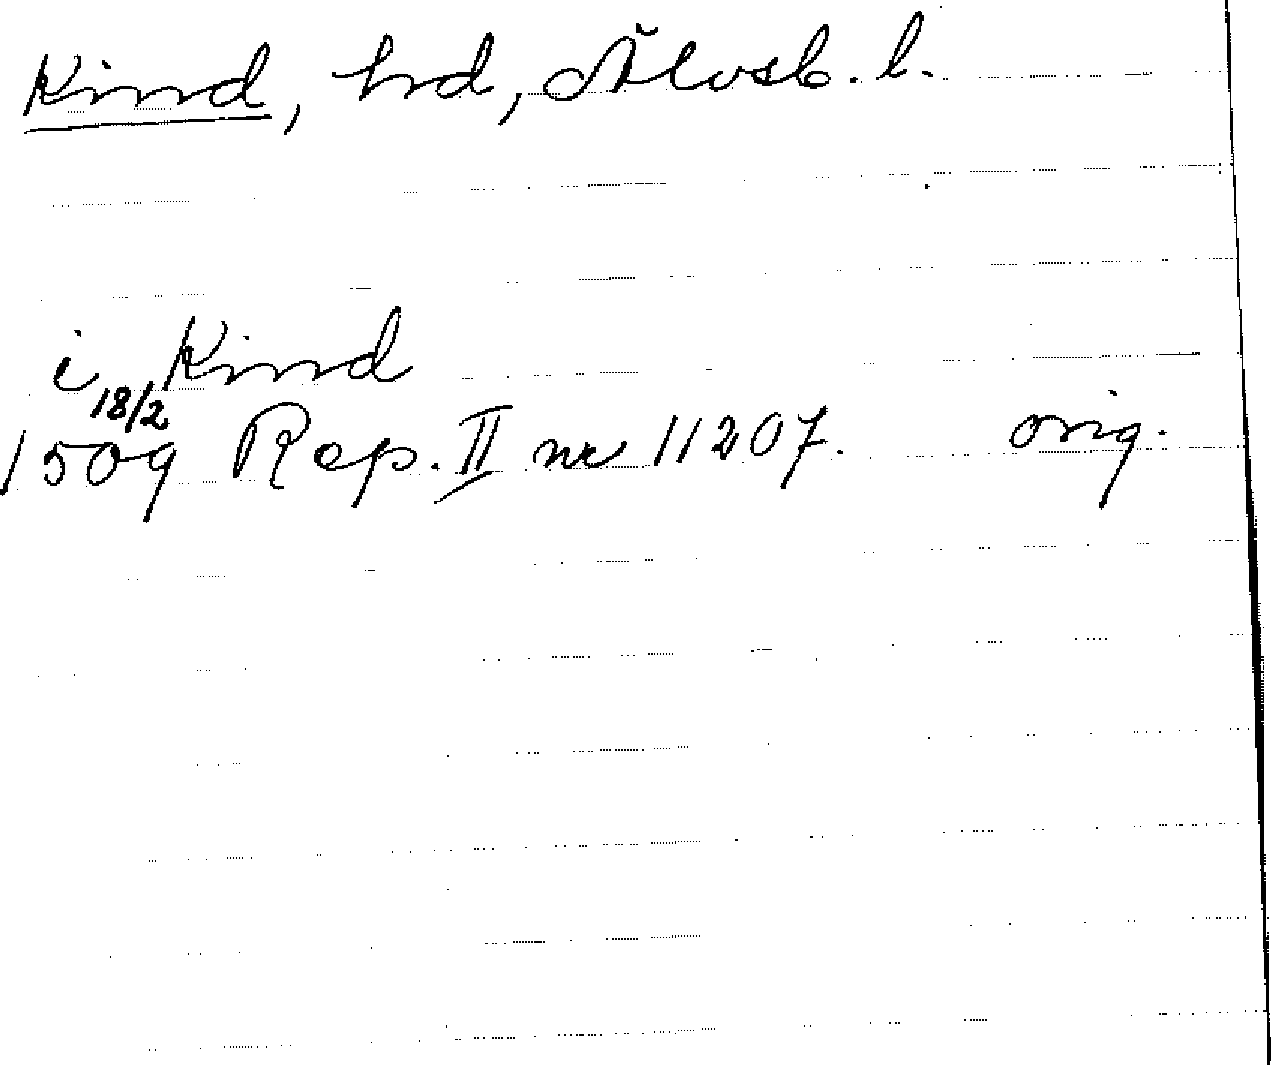 Kind, hd, Älvsb. l.
i Kind
18/2
1509 Rep. II nr 11207. orig.